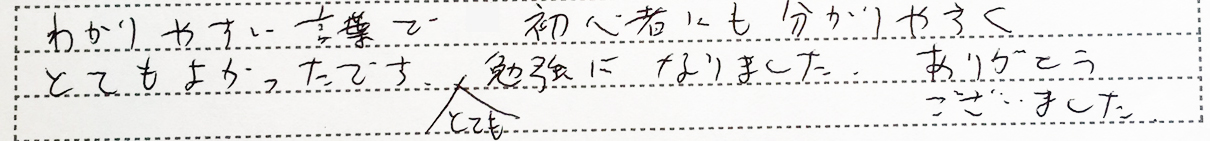 わかりやすい言葉で 初心者にも分かりやすく
とてもよかったです。とても勉強になりました。ありがとう
ございました